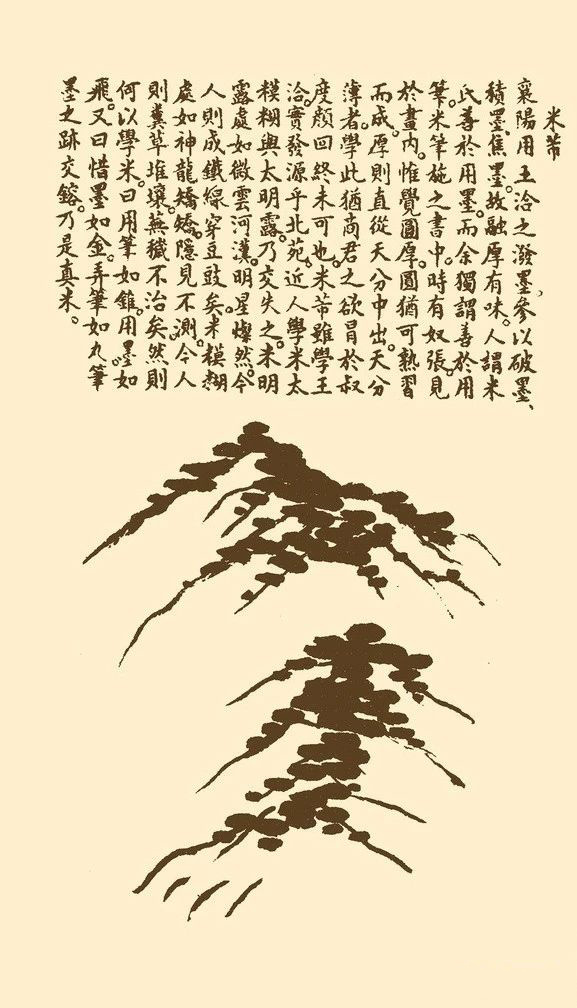 米芾
襄陽用王洽之潑墨、參以破墨、
積墨、焦墨、故融厚有味。人謂米
氏善於用墨。而余獨謂善於用
筆。米筆施之書中。時有奴張。見
於畫內。惟覺圓厚。圓猶可熟習
而成。厚則直從天分中出。天分
薄者。學此猶商君之欲冐於叔
度。顏回終未可也。米芾雖學王
洽。實發源乎北苑。近人學米太
糢糊。與太明露。乃交失之。米明
露處如微雲河漢。明星燦然。今
人則成鐵線穿豆豉矣。米糢糊
處如神龍矯矯。隱見不測。今人
則糞草堆壤。蕪穢不治矣。然則
何以學米。曰用筆如錐。用墨如
飛。又曰惜墨如金。弄筆如丸。筆
墨之跡交鎔。乃是真米。